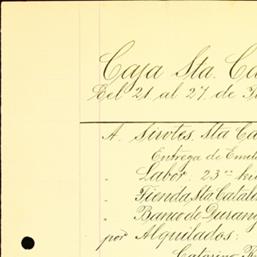 Caja Sta. Ca
Del 21 al 27 de
A. Sirvtes. Sta Ca
Entrega de Emil
" Labor 23 
" Tienda Sta Catal
" Banco de Durang
por Alquilados:
Catarino R